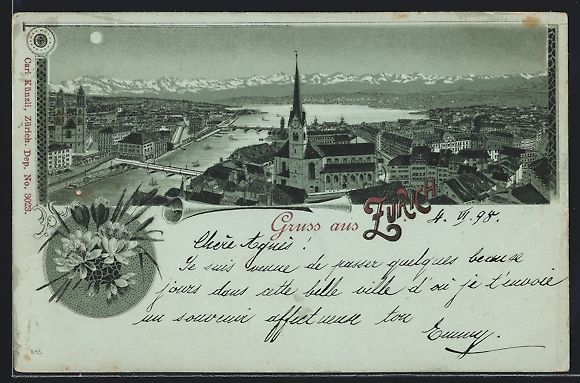 Carl Künzli, Zürich. Dep. No. 3023.
Gruss aus ZÜRICH
4. VI. 98.
Chère Agnès!
Je suis venue de passer quelques beaux
jours dans cette belle ville d'où je t'envoie
un souvenir affectueux ton
Emmy.